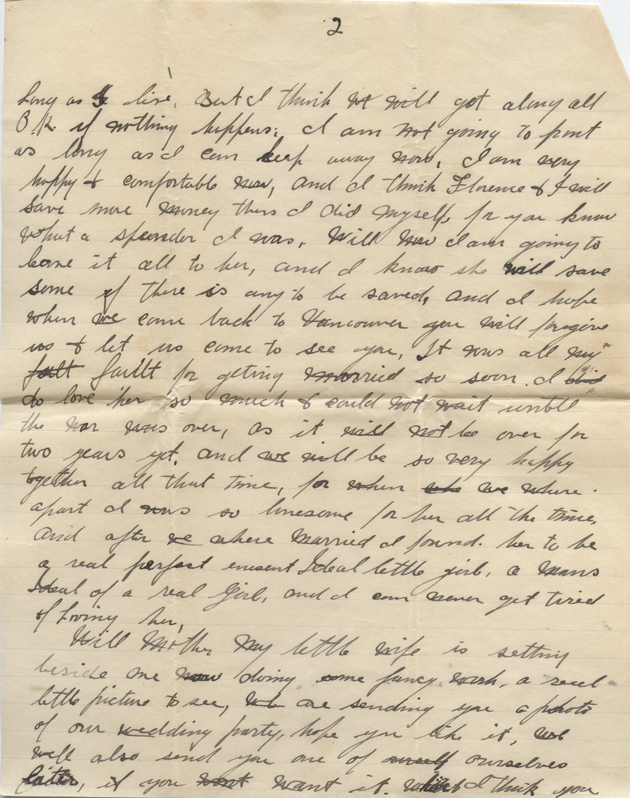 2
long as I live. But I think we will get along all
O.K. if nothing happens. I am not going to front
as long as I can keep away now, I am very
happy & comfortable now, and I think Florence & I will
save more money then I did myself, for you know
what a spender I was, Will now I am going to
leave it all to her, and I know she will save
some if there is any to be saved, and I hope
when we come back to Vancouver you will forgive
us & let us come to see you, It was all my
falt faillt for geting married so soon. I did
do love her so much & could not wait untill
the war was over, as it will not be over for
two years yet. and we will be so very happy
together all that time, for when we where
apart I was so lonesome for her all the time,
and after we where married I found her to be
a real perfect Ideal little girl, a mans
Ideal of a real Girl, and I can never get tired
of loving her,
Will Mother my little wife is setting
beside me now doing some fancy work, a reel
little picture to see, we are sending you a photo
of our wedding party, hope you like it, we
will also send you one of ourselves
later, if you want want it. I think you